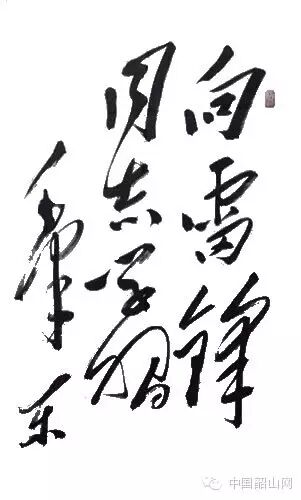 向雷锋
同志学习
毛泽东
中国韶山网